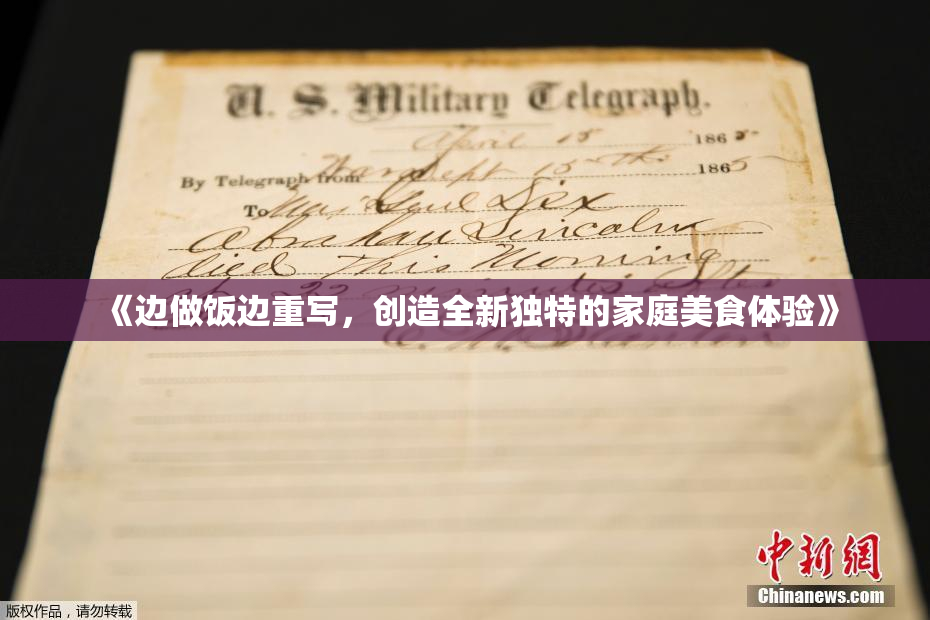 U. S. Military Telegraph.
April 15 1865
By Telegraph from War Dept 15th 1865
To Maj Genl Dix
Abraham Lincoln
died This Morning
at 22 minutes after
《边做饭边重写，创造全新独特的家庭美食体验》
中新网
Chinanews.com
版权作品，请勿转载